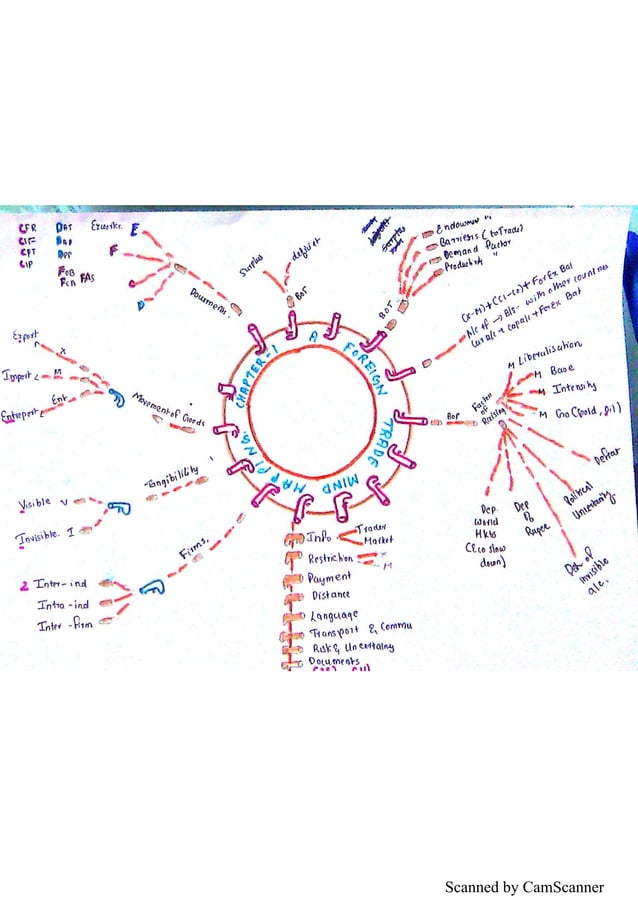 CFR DAT Exworks. E
CIF DAP
CPT DPP F
CIP
FOB FAS
FCA
C
D
Documents.
Surplus
deficiet
BOT
Endowment "
Barriers (to Trade)
Demand Factor
Productivity "
BOT
(X-M)+(CI-CO)+ForEx Bal
A/c of → Bls- with other countries
Cur a/c + capalc + ForEx Bat
BOP
Factor
of
M Liberalisation
M Base
M Intensity
M Gro (Gold, Oil)
Defecit
Political
Uncertainity
Det of
invisible
a/c.
Dep
of
Rupee
Dep
World
Mkts
(Eco slow
down)
CHAPTER-1 A FOREIGN TRADE MIND MAPPING.
Export X
Import M
Entreport Ent
Movement of Goods
Tangibility
Visible V
Invisible. I
Firms.
2 Inter-ind
Intra-ind
Inter-firm
Info Trader
Market
Restriction X
M
Payment
Distance
Language
Transport & Commu
Risk & Uncertainy
Documents
Scanned by CamScanner